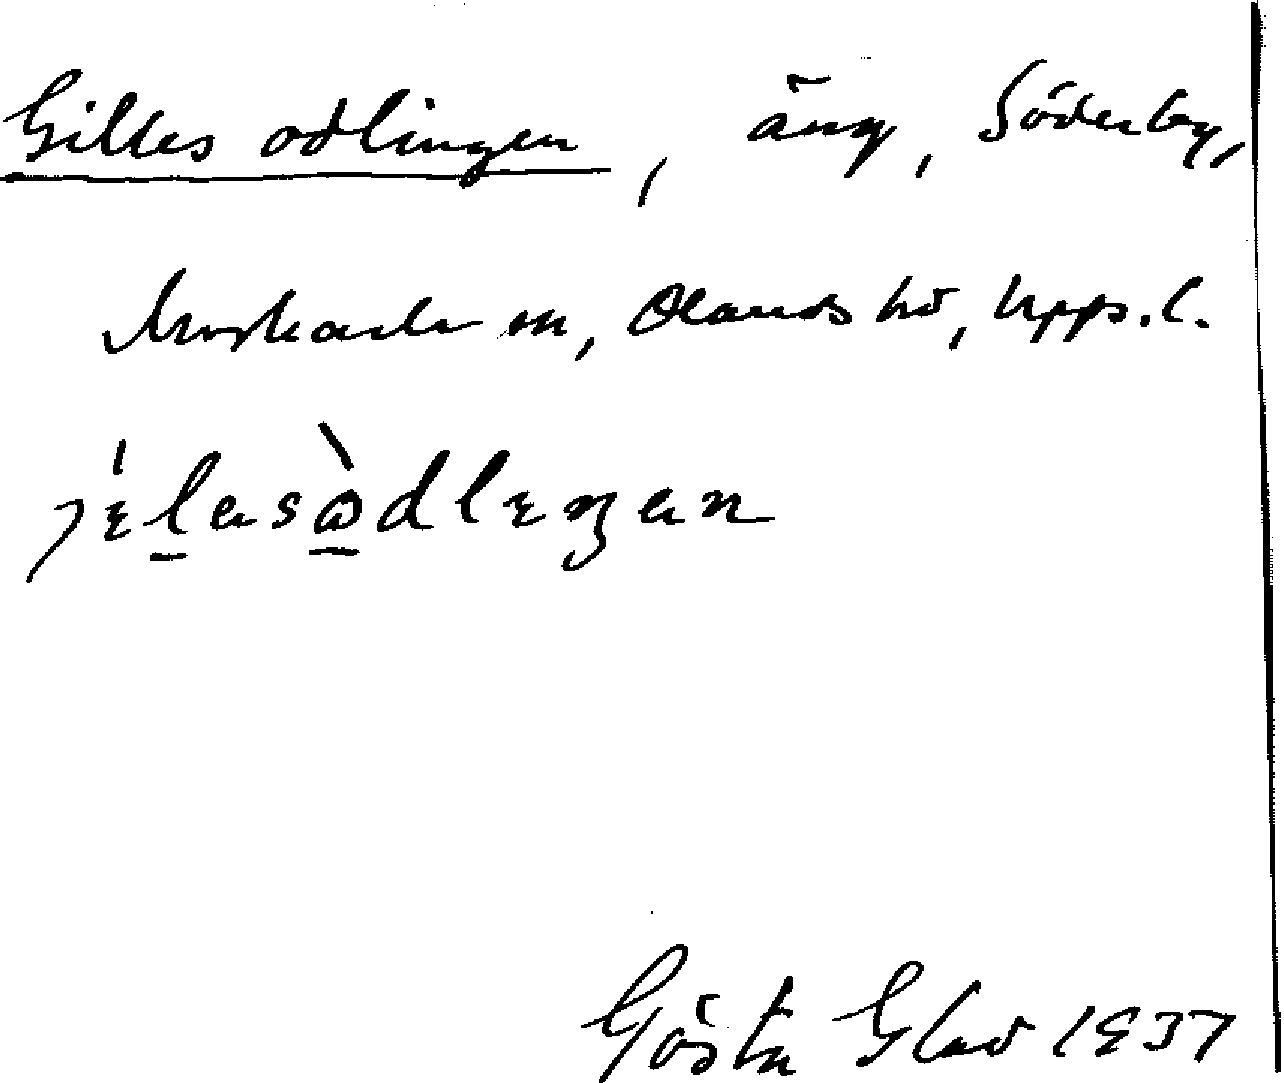 Gilles odlingen, äng, Söderby,
Morkarla sn, Olands hd, Uppl.
jɩ́lesòdlɩŋen
Gösta Glad 1937